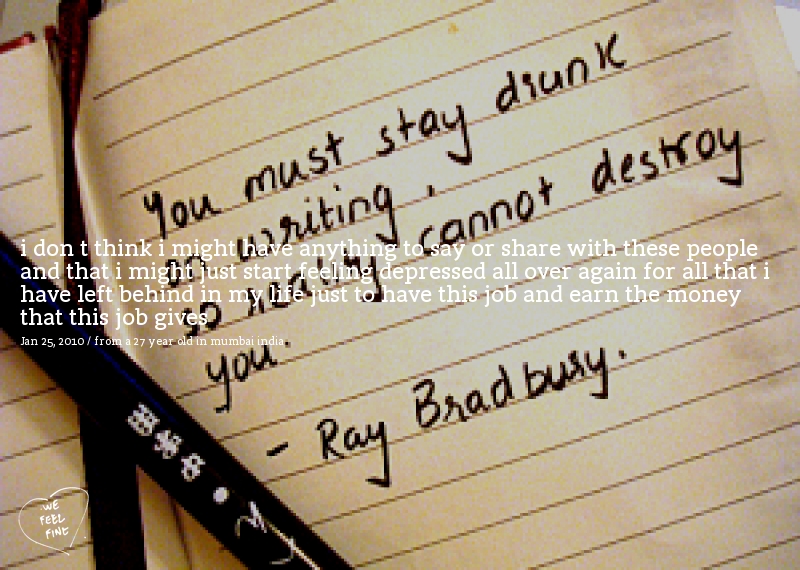 You must stay drunk
on writing,
so reality cannot destroy
you.
- Ray Bradbury.
i don t think i might have anything to say or share with these people
and that i might just start feeling depressed all over again for all that i
have left behind in my life just to have this job and earn the money
that this job gives
Jan 25, 2010 / from a 27 year old in mumbai india
WE
FEEL
FINE